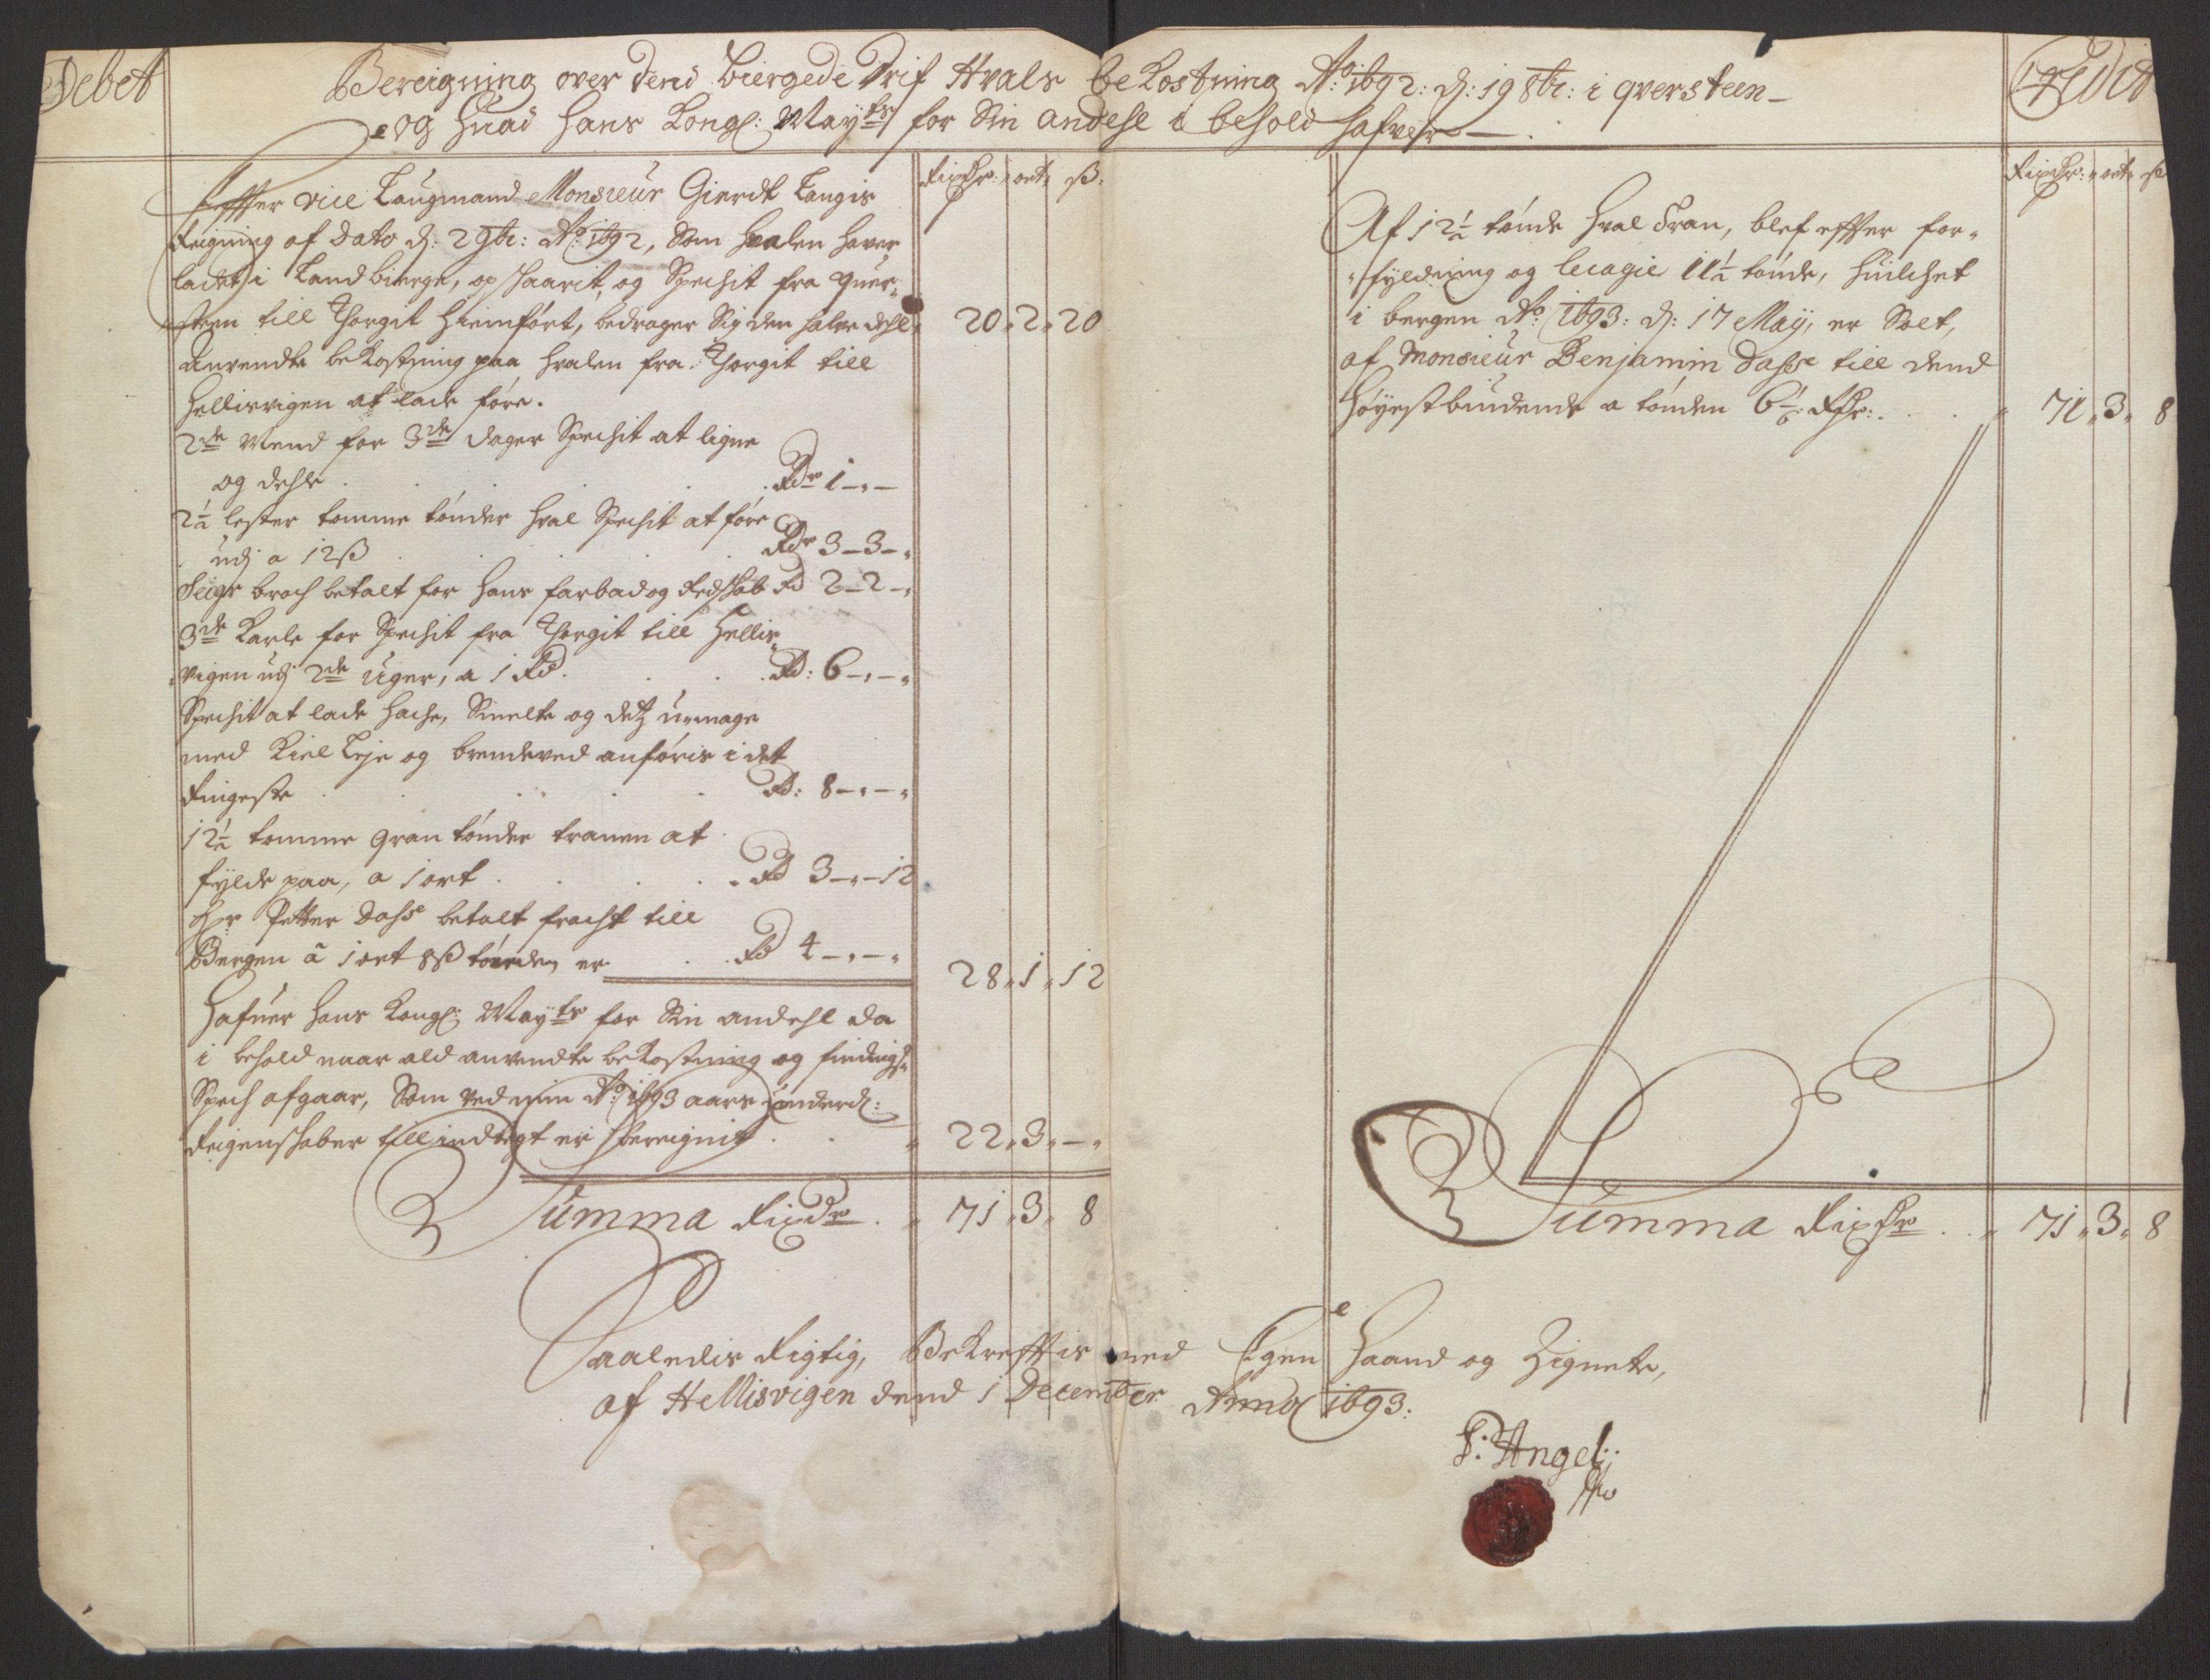 Debet
Bereigning over dend biergede Drif Hvals beKostning Ao: 1692: d: 19 8br: i qversteen
Credit
og huad Hans Kongl: Mayts for Sin andehl i behold hafver
Rixdr: ort ß:
Effter vice Laugmand Monsieur Gierdt Langis
Reigning af dato d: 2 9br: Ao 1692, Som hvalen haver
ladet i Land bierge, op skaarit, og Spechit fra quer¬
steen till Thorgit hiemført, bedrager Sig den halve dehl 20 2 20
Anvendte beKostning paa hvalen fra Thorgit till
Hellisvigen at lade føre.
2de Mend for 3de dager Spechit at ligne
og dehle . . . Rdr 1 - -
2½ lester tomme tønder hval Spechit at føre
udj a 12ß . . . Rdr 3 - 3 -
betalt for hans farbad og Redshab Rd 2 - 2 -
3de Karle for Spechit fra Thorgit till Hellis¬
vigen udj 2de Uger, a 1 Rd. . . . Rd: 6 - -
Spechit at lade hache, Smelte og detz umage
med Kiel Leje og brendeved anføris i det
Ringeste . . . Rd: 8 - -
12½ tomme gran tønder tranen at
fylde paa, a 1 ort . . . Rd 3 - - 12
Hr Petter Dahss betalt fracht till
Bergen â 1 ort 8ß tønden er . . Rd 4 - - 28 1 12
Hafuer Hans Kongl: Mayts for Sin andehl da
i behold naar ald anvendte beKostning og findings
Spech afgaar, Som ved min Ao 1693 aars
Reigenskaber till indtegt er bereignit . . 22 3 -
Summa Rixdr . 71 3 8
Rixdr: ort ß
Af 12½ tønde Hval Tran, blef effter for¬
fyldning og lecagie 11½ tønde, huilchet
i bergen Ao: 1693: d: 17 May, er Solt,
af Monsieur Benjamin Dahss till dend
høyestbiudende a tønden 6 Rdr: . . 71 3 8
Summa Rixdr . . 71 3 8
Saaledis Rigtig, BeKrefftis med Egen Haand og Zignete,
af Hellisvigen dend 1 December Anno 1693.
P: Angel: